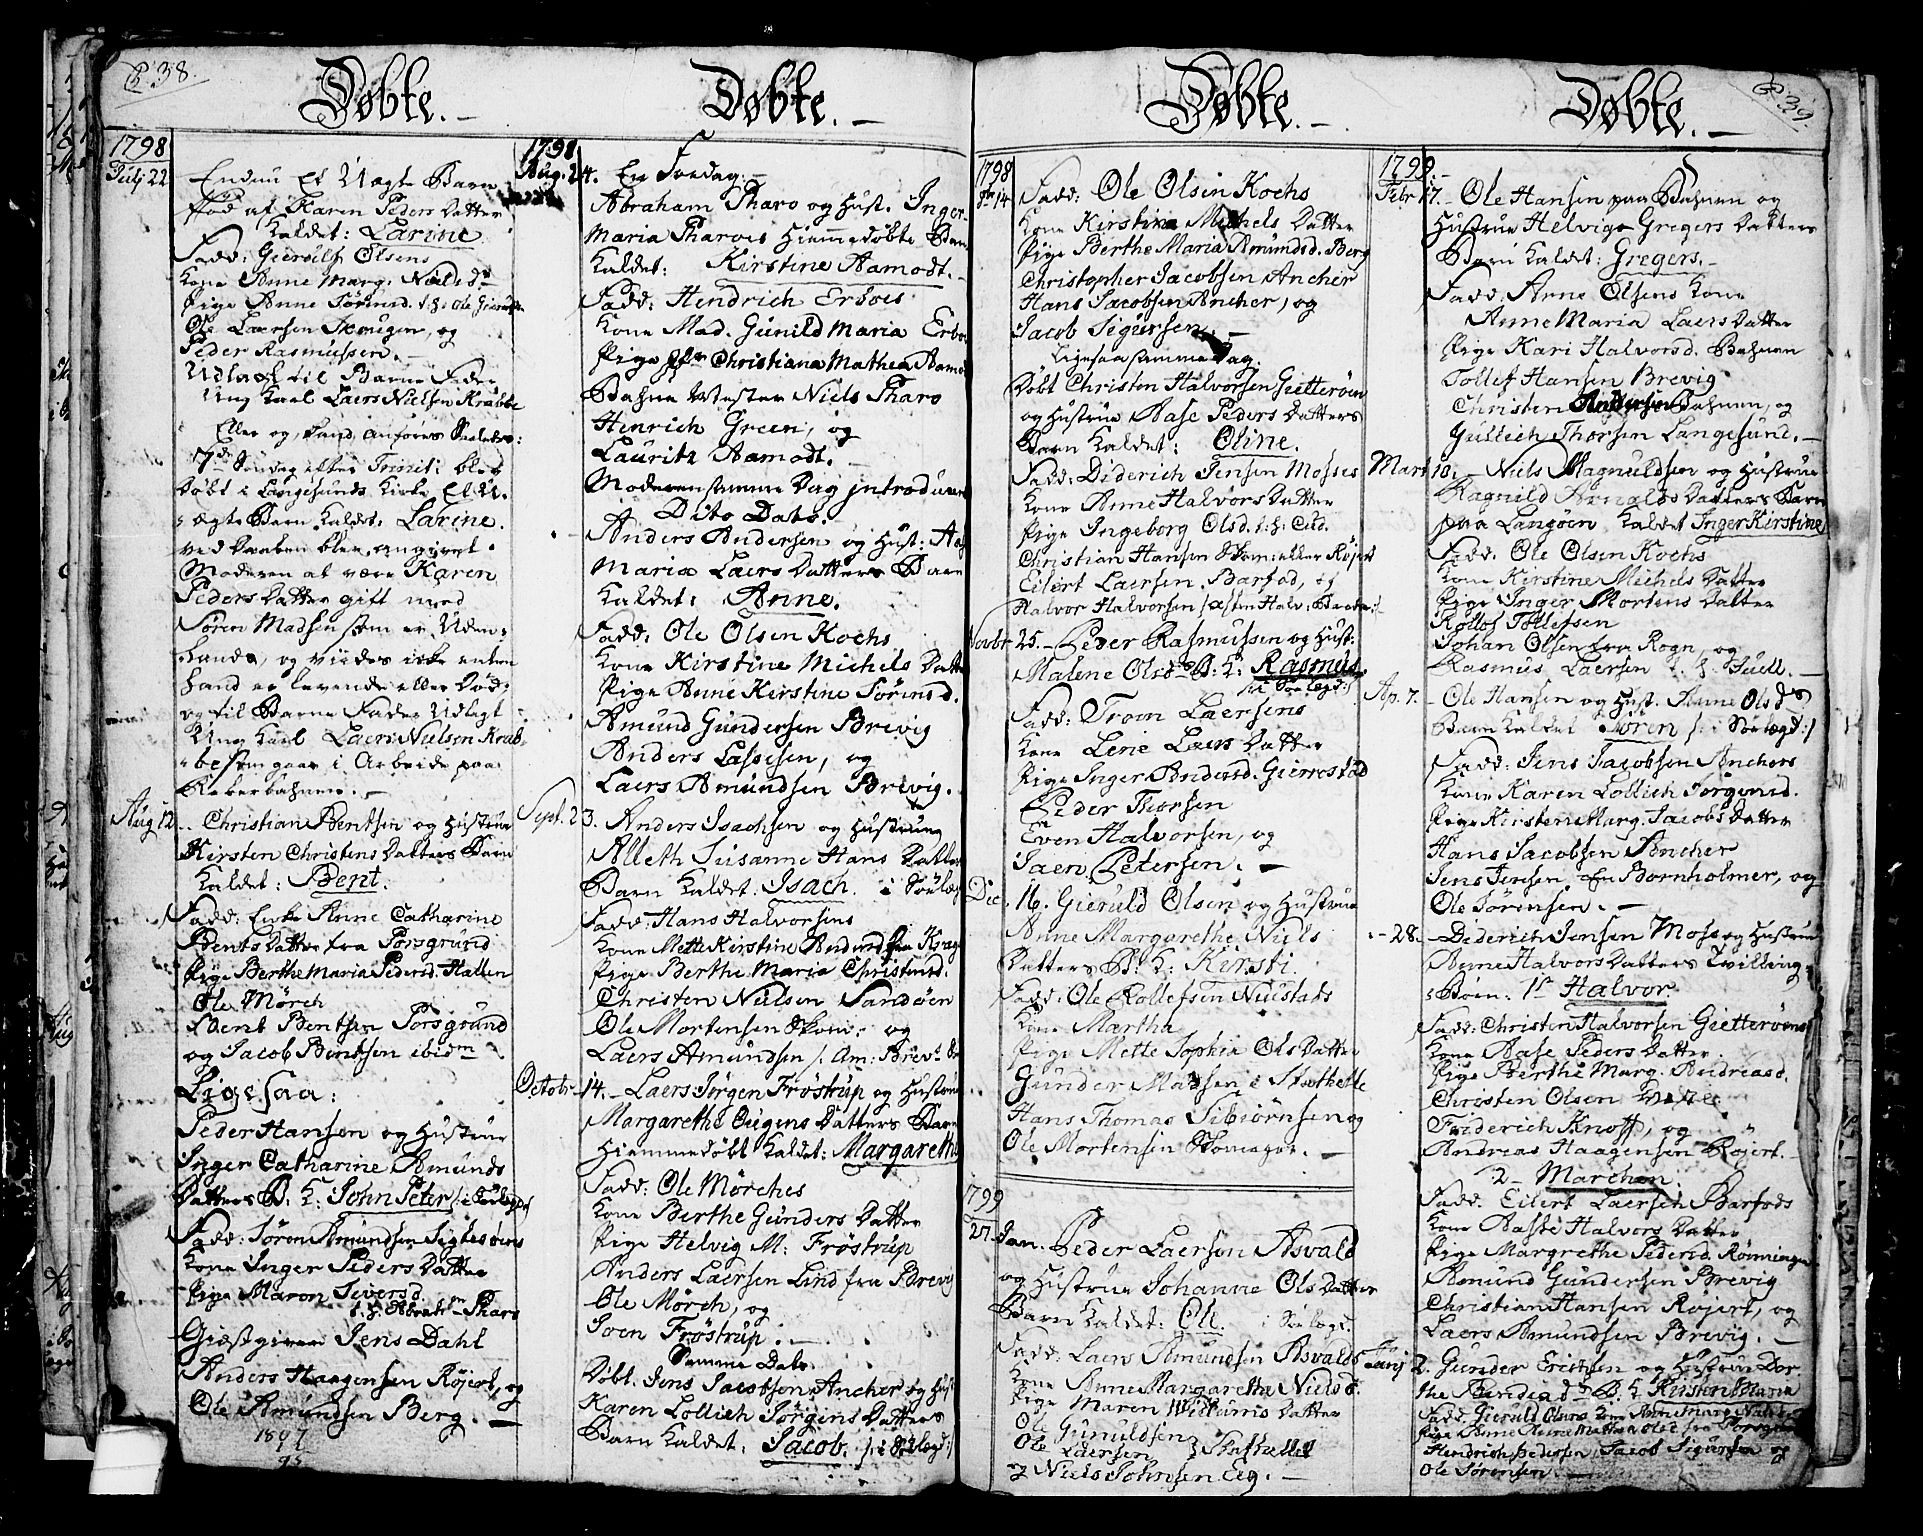 P. 38.
Døbte.
Døbte.
1798
Julj 22
Endnu et Uægte Barn
fød af Karen Peders Datter
Kaldet: Larine.
Fadd: Gieruldf Olsens
Kone Anne Marg: Niels dr
Pige Anne Sørensd.
Ole Laersen Skougen, og
Peder Rasmussen.
Udlagt til Barne Fader
Ung Karl Laers Nielsen Krabbe
Eller og, kand anføres Saaledes:
7de Søndag efter Trinit: blev
Døbt i Langesunds Kirke, Et U-
ægte Barn kaldet: Larine.
ved Daaben blev angivet
Moderen at være Karen
Peders Datter gift med
Søren Madsen som er Uden-
lands, og viides ikke enten
hand er levende eller Død:
og til Barne Fader Udlagt
Ung Karl Laers Nielsen Krab-
be som gaar i Arbeide paa
Reberbahnen.
Aug 12
Christian Bentsen og Hustrue
Kirsten Christens Datters Barn
Kaldet: Bent.
Fadd: Enke Anne Catharine
Bents Datter fra Porsgrund
Pige Berthe Maria Pedersd. Halten
Ole Mørch
Bent Bentsen Porsgrund
og Jacob Bentsen ibidm
Ligesaa:
Peder Hansen og Hustrue
Inger Catharine Amunds
Datters B. K: John Peter
Fadd: Søren Amundsen Sigtesøens
Kone Inger Peders Datter
Pige Maron Siversd.
Giæstgiver Jens Dahl
Anders Haagensen Røjert, og
Ole Amundsen Berg.
1798
Aug. 24. En Fredag.
Abraham Tharo og Hust. Inger
Maria Tharoes Hiemmedøbte Barn
Kaldet: Kirstine Aamodt.
Fadd: Hendrich Erboes
Kone Mad. Gunild Maria Erboe
Pige Christiana Mathea Aamodt
Bahne Mester Niels Tharo
Henrich Green, og
Lauritz Aamodt.
Moderen samme Dag introduceret
Dito Dato.
Anders Andersen og Hust:
Maria Laers Datters Barn
Kaldet: Anne.
Fadd: Ole Olsen Kochs
Kone Kirstine Michels Datter
Pige Anne Kirstine Sørensd.
Amund Gundersen Brevig
Anders Lassesen, og
Laers Amundsen Brevig.
Sept. 23.
Anders Isachsen og Hustrue
Alleth Susanne Hans Datters
Barn Kaldet: Isach. i Søelægd
Fadd: Hans Halvorsens
Kone Mette Kirstine Andersd fra Krag
Pige Berthe Maria Christensd.
Christen Nielsen Sandøen
Ole Mortensen Skom: og
Laers Amundsen
Octobr 14.
Laers Jørgen Frøstrup og Hustrue
Margarethe Ougens Datters Barn
Hiemmedøbt Kaldet: Margarethe
Fadd: Ole Mørches
Kone Berthe Gunders Datter
Pige Helvig M: Frøstrup
Anders Laersen Lind fra Brevig
Ole Mørch, og
Joen Frøstrup.
Samme Dato
Døbt Jens Jacobsen Ancher og Hust
Karen Lollich Jørgens Datters
Barn Kaldet: Jacob. /: i Sølægd:/
Døbte.
Døbte.
P. 39.
1798
14
Fadd: Ole Olsen Kochs
Kone Kirstina Michels Datter
Pige Berthe Maria Amundsd. Berg
Christopher Jacobsen Ancher
Hans Jacobsen Ancher, og
Jacob Sigursen.
Ligesaa samme Dag.
Døbt Christen Halvorsen Gietterøen
og Hustrue Aase Peders Datters
Barn Kaldet: Oline.
Fadd: Diderich Jensen Mosses
Kone Anne Halvors Datter
Pige Ingeborg Olsd.
Christian Hansen Røjert
Eilert Laersen Barfod, og
Halvor Halvorsen
Novbr 25.
Peder Rasmussen og Hust:
Malene Olsd B: K: Rasmus
/: i Søelægd:/
Fadd: Trom Laersens
Kone Lene Laers Datter
Pige Inger Andersd. Gierrestad
Peder Thorsen
Even Halvorsen, og
Saen Petersen.
Dec. 16.
Gieruld Olsen og Hustrue
Anne Margarethe Niels
Datters B: K: Kirsti.
Fadd: Ole Rollefsen Nustads
Kone Martha
Pige Mette Sophia Ols Datter
Gunder Madsen i Stathelle
Hans Thomas Sibiørnsen og
Ole Mortensen Skomager.
1799
27. Jan.
Peder Laerson Asvald
og Hustrue Johanne Ols Datter
Barn Kaldet: Ole. i Sølægd.
Fadd: Laers Amundsen Asvalds
Kone Anne Margaretha Nielsd.
Pige Maren Datter
Ole Gunuldsen
Ole Laersen } Stathellet
og Niels Johnsen Eeg.
1799.
Febr 17.
Ole Hansen paa Bahnen og
Hustrue Helvig Gregers Datters
Barn Kaldet: Gregers.
Fadd: Arne Olsens Kone
Anne Maria Laers Datter
Pige Kari Halvorsd. Bahnen
Tollef Hansen Brevig
Christen Andersen Bahnen, og
Gullich Thorsen Langesund.
Mart 10.
Niels Magnuldsen og Hustrue
Ragnild Arnolds Datters Barn
paa Langøen Kaldet Inger Kirstine
Fadd: Ole Olsen Kochs
Kone Kirstine Michels Datter
Pige Inger Mortens Datter
Rollof Tollefsen
Johan Olsen fra Rogn, og
Rasmus Laersen
Ap. 7.
Ole Hansen og Hust. Anne Olsds
Barn Kaldet Søren /: i Søelægd:/
Fadd: Jens Jacobsen Anchers
Kone Karen Lollich Jørgensd.
Pige Kirstene Marg. Jacobs Datter
Hans Jacobsen Ancher
Jens Jensen en Bornholmer, og
Ole Sørensen.
28.
Dederich Jensen Moss og Hustrue
Anne Halvors Datters Tvilling-
Børn: 1te Halvor.
Fadd: Christen Halvorsen Gietterøens
Kone Aase Peders Datter
Pige Berthe Marg. Andreasd.
Christen Olsen
Friderich Knoff, og
Andreas Haagensen Røjert.
2 Marchen.
Fadd. Eilert Laersen Barfods
Kone Aasse Halvors Datter
Pige Margrethe Pedersd. Rønningen
Amund Gundersen Brevig
Christian Hansen Røjert, og
Laers Amundsen Brevig.
Junj 2.
Gunder Erichsen og Hustrue Dor
the B. K Kirsten Maria
Fadd. Gieruld Olsens Kone Anne Marg Niels
Hendrich Pedersen, Jacob Sigursen og
Ole Sørensen